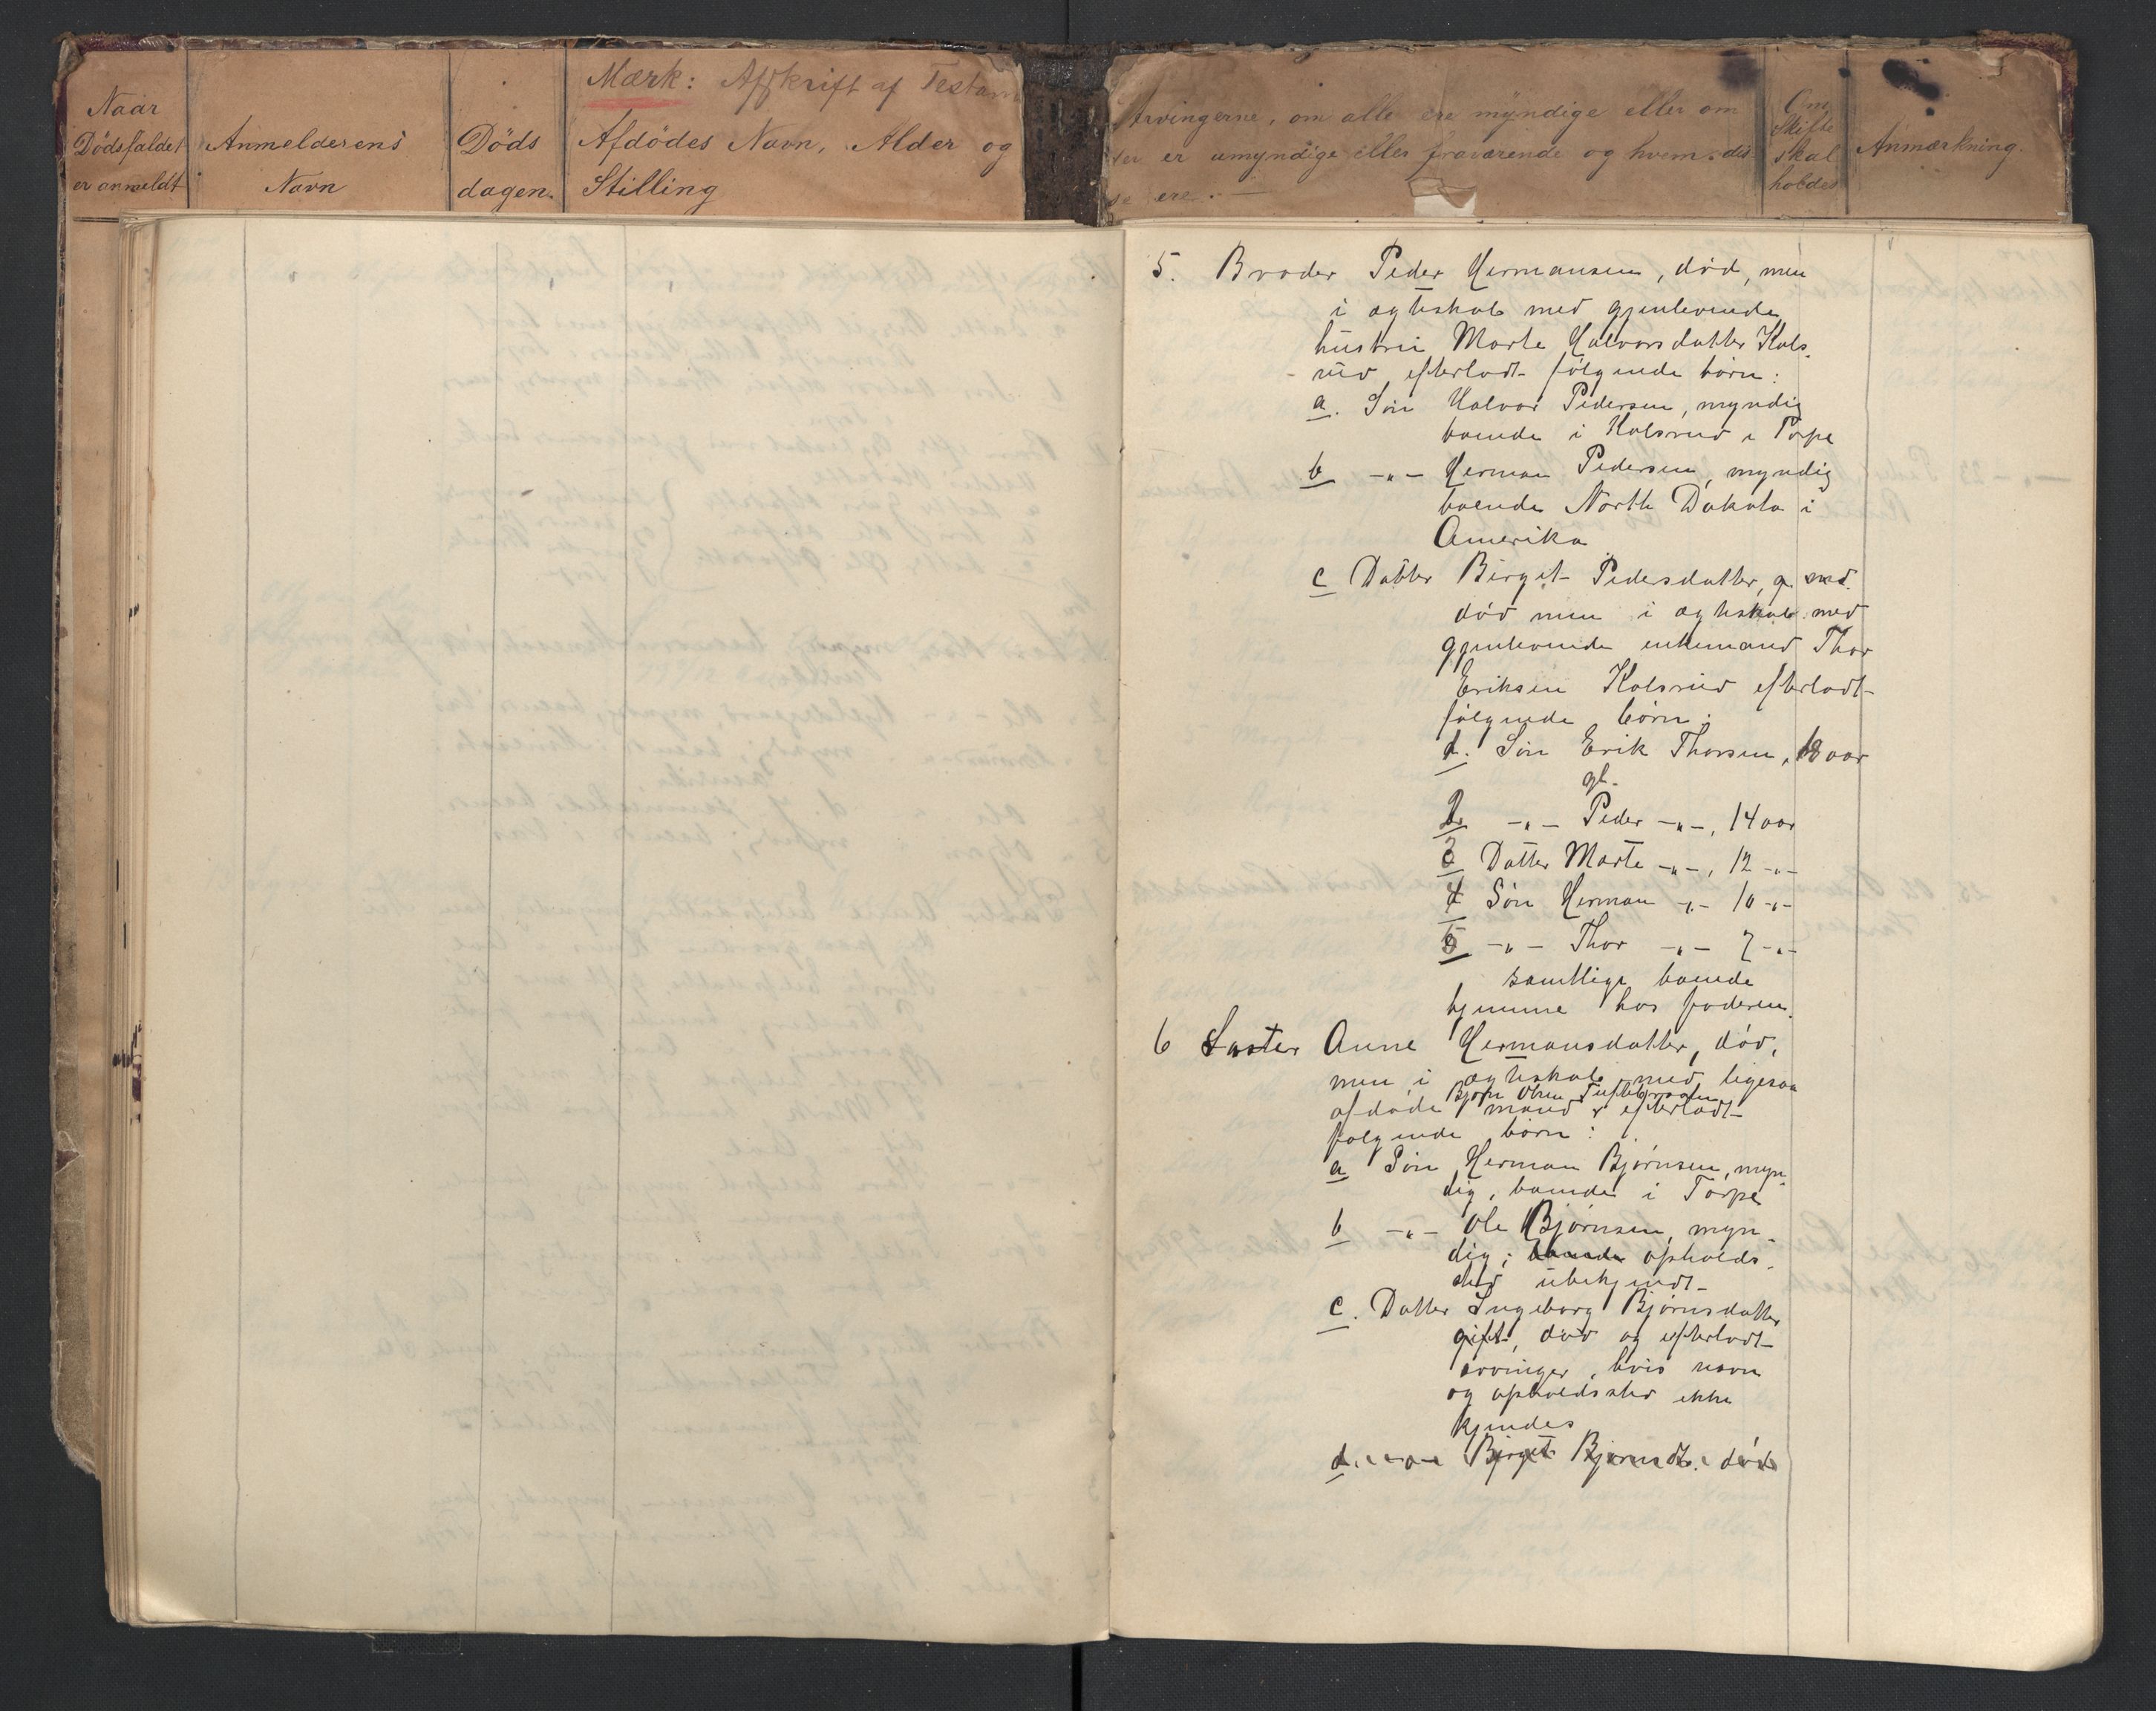 Naar
Dødsfaldet
er anmeldt
Anmelderens
Navn
Døds
dagen.
Mærk: Afskrift af Testam
Afdødes Navn, Alder og
Stilling
Arvingerne, om alle ere myndige eller om
der er umyndige eller fraværende og hvem dis-
se ere. —
Om
Skifte
skal
holdes
Anmærkning.
5. Broder Peder Hermansen, død, men
i ægteskab med gjenlevende
hustru Marte Halvorsdatter Kols-
rud efterladt følgende børn:
a. Søn Halvor Pedersen, myndig
boende i Kolsrud i Torpe
b -"- Herman Pedersen, myndig
boende North Dakota i
Amerika
c Datter Birgit Pedersdatter, g. med
død men i ægteskab med
gjenlevende enkemand Thor
Eriksen Kolsrud efterladt
følgende børn:
1. Søn Erik Thorsen, 18 aar
gl.
2 -"- Peder -"-, 14 aar
3 Datter Marte -"-, 12 -"-
4 Søn Herman -"- 10 -"-
5 -"- Thor -"- 7 -"-
samtlige boende
hjemme hos faderen.
6 Søster Anne Hermansdatter, død,
men i ægteskab med ligesaa
Bjørn Olsen
afdøde mand efterladt
følgende børn:
a Søn Herman Bjørnsen, myn-
dig, boende i Torpe
b -"- Ole Bjørnsen, myn-
dig; boende opholds-
sted ubekjendt
c. Datter Ingeborg Bjørnsdatter
gift, død og efterladt
arvinger, hvis navn
og opholdssted ikke
kjendes
d. -"- Birgit Bjørnsdt. død